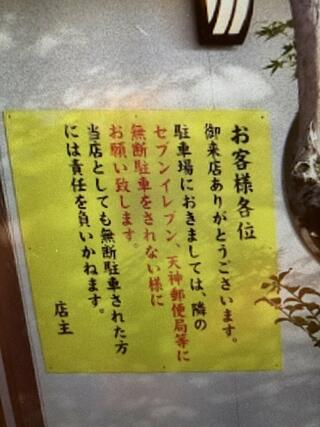 お客様各位
御来店ありがとうございます。
駐車場におきましては、隣の
セブンイレブン、天神郵便局等に
無断駐車をされない様に
お願い致します。
当店としても無断駐車された方
には責任を負いかねます。
店主